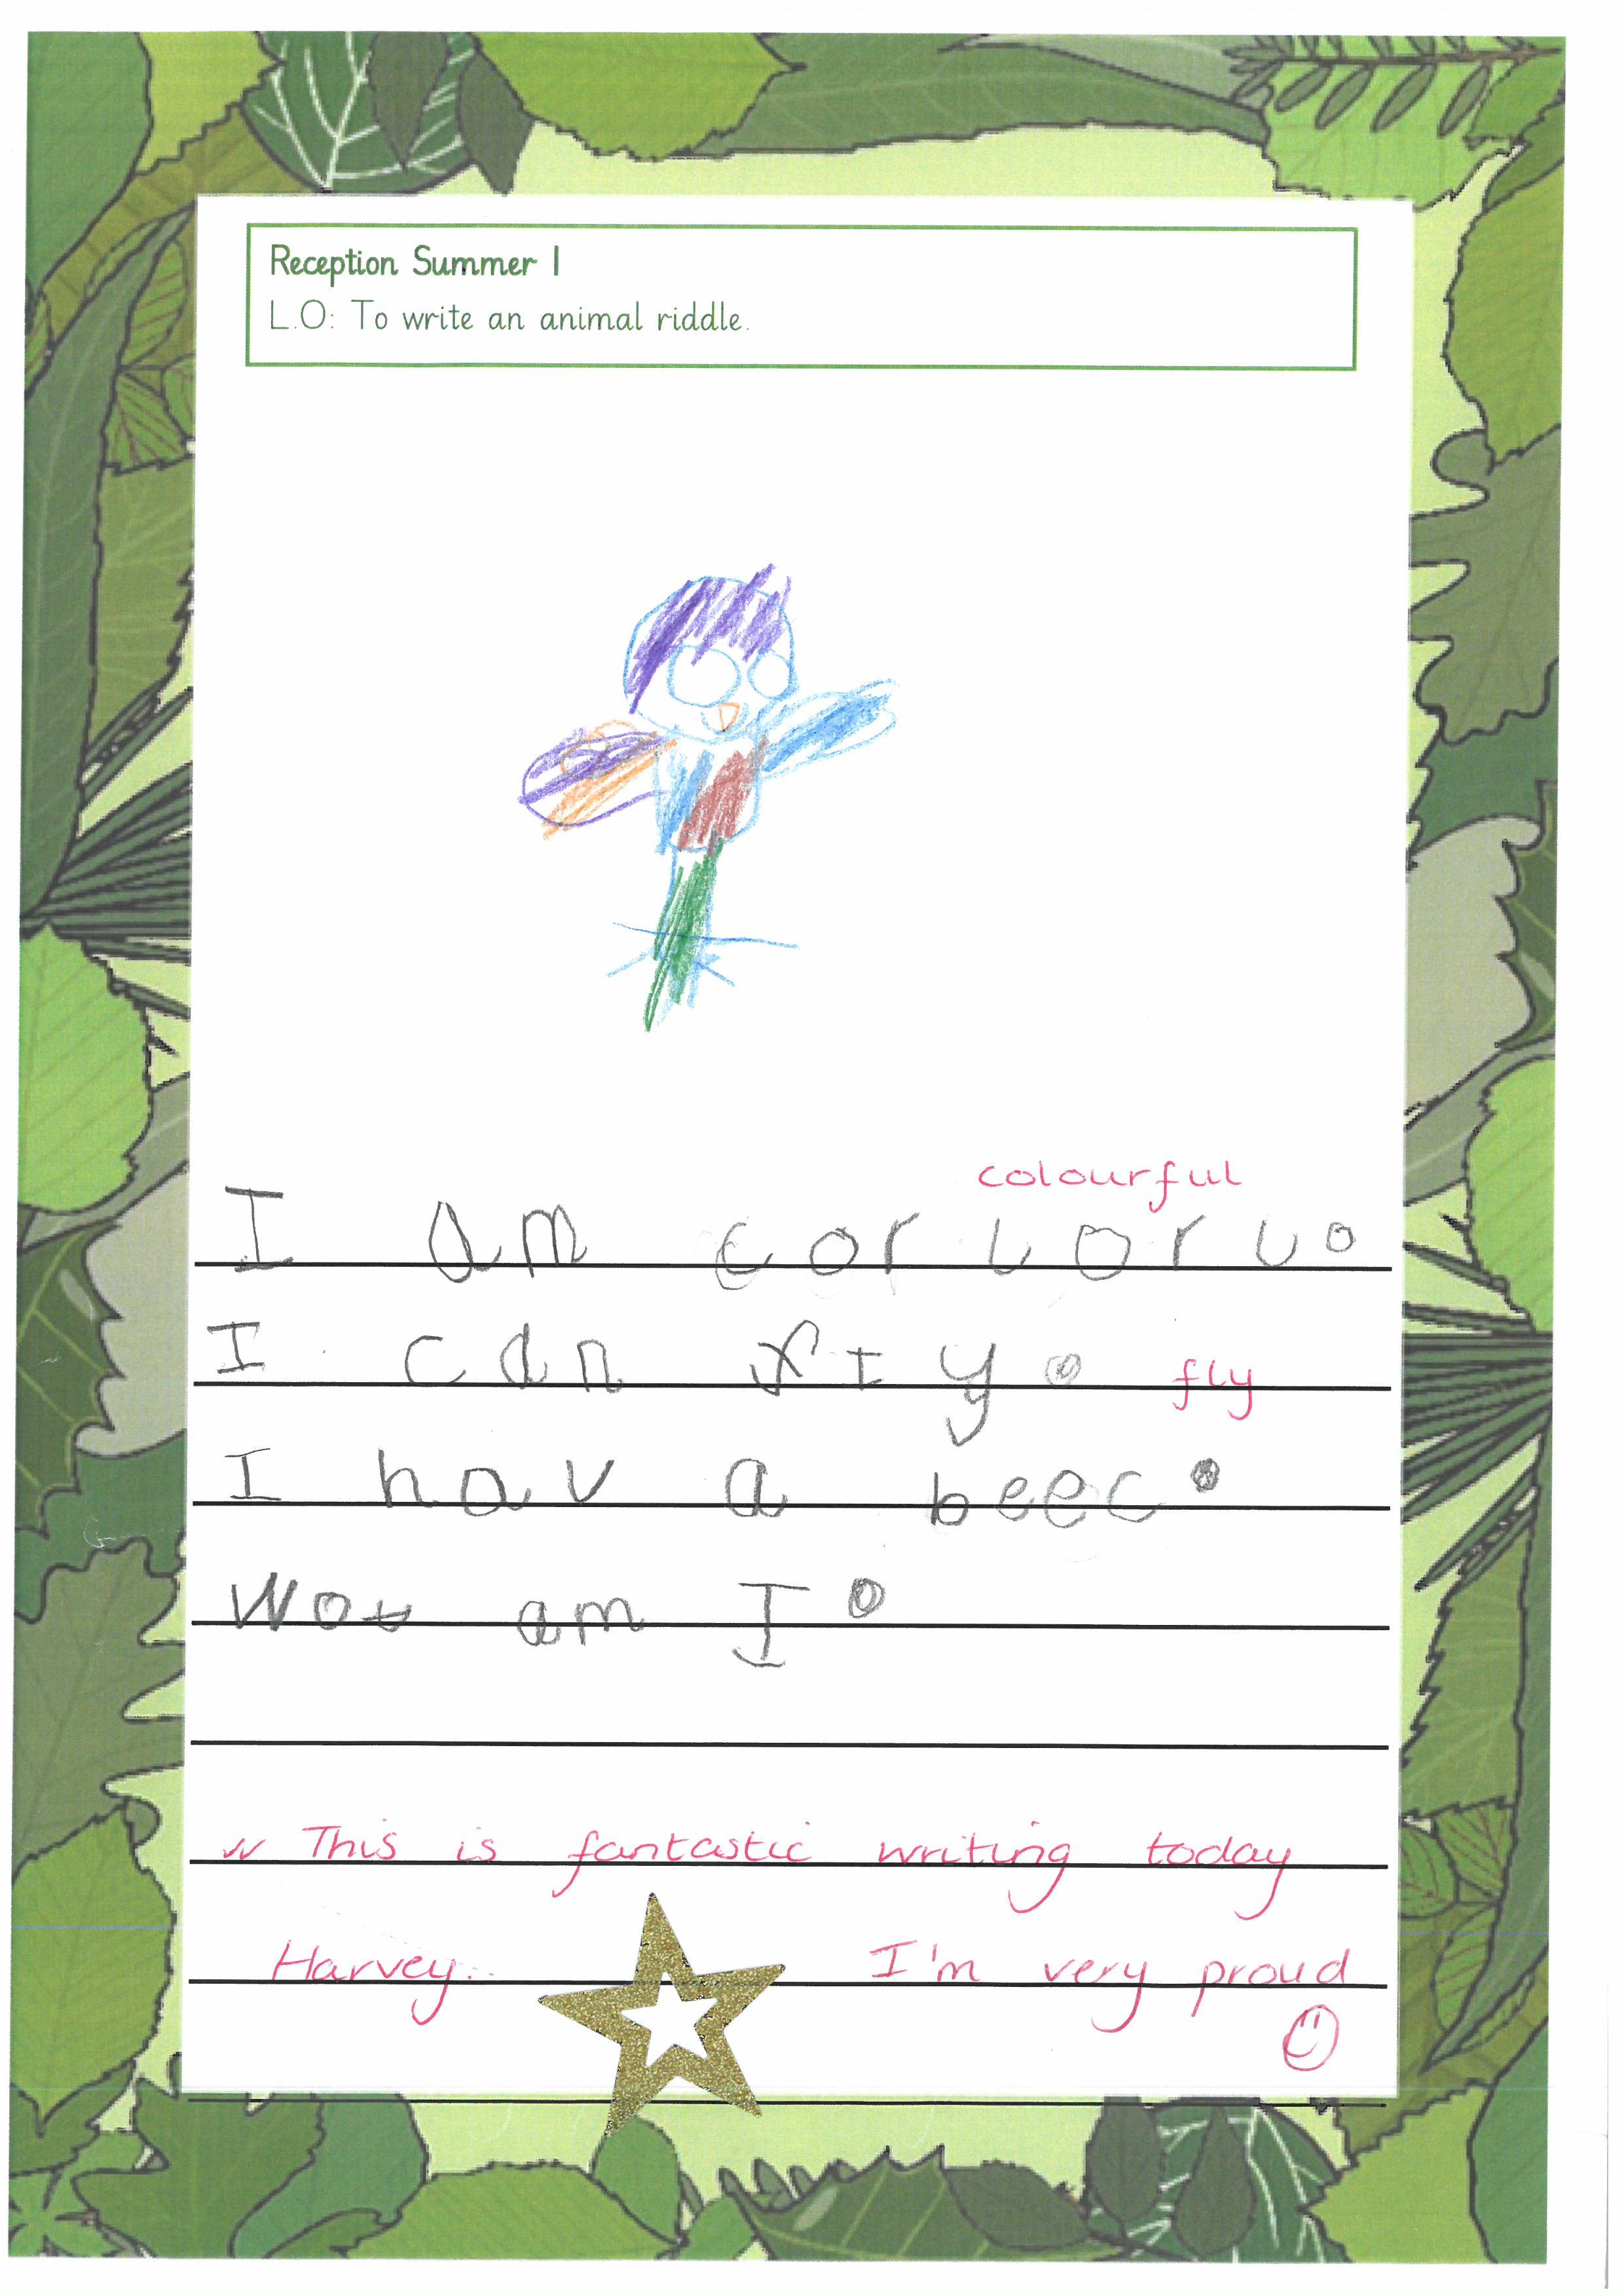 Reception Summer 1
L.O: To write an animal riddle.
colourful
I am corloru.
I can fly. fly
I hav a beec.
Wot am I.
This is fantastic writing today
Harvey. I'm very proud